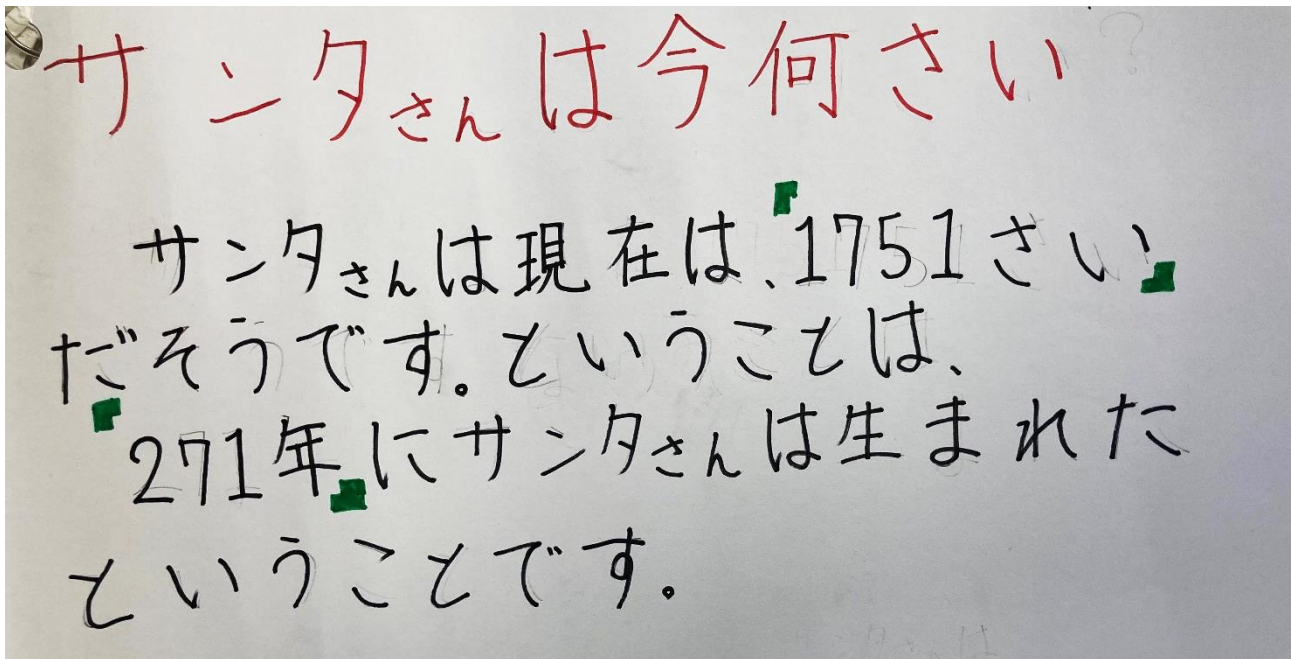 サンタさんは今何さい
サンタさんは現在は、「1751さい」
だそうです。ということは、
「271年」にサンタさんは生まれた
ということです。